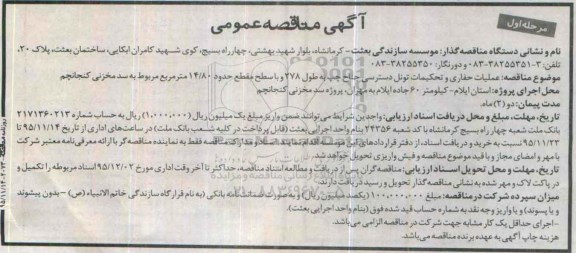 آگهی مناقصه عمومی
مرحله اول
نام و نشانی دستگاه مناقصه گذار: موسسه سازندگی بعثت- کرمانشاه، بلوار شهید بهشتی، چهارراه بسیج، کوی شهید کامران ابکایی، ساختمان بعثت، پلاک ۲۰،
تلفن: ۳-۳۸۲۵۵۳۵۱-۰۸۳ و دورنگار: ۳۸۲۵۵۳۵۰-۰۸۳
موضوع مناقصه: عملیات حفاری و تحکیمات تونل دسترسی جناح چپ به طول ۲۷۸ و با سطح مقطع حدود ۱۴/۸۰ مترمربع مربوط به سد مخزنی کنجانچم
محل اجرای پروژه: استان ایلام- کیلومتر ۶۰ جاده ایلام به مهران، پروژه سد مخزنی کنجانچم
مدت پیمان: دو (۲) ماه.
تاریخ، مهلت، و محل دریافت اسناد ارزیابی: واجدین شرایط می توانند ضمن واریز مبلغ یک میلیون ریال (۱.۰۰۰.۰۰۰) ریال به حساب شماره ۲۱۷۱۳۶۰۲۱۳
بانک ملت شعبه چهارراه بسیج کرمانشاه با کد شعبه ۲۴۳۵۶ بنام واحد اجرایی بعثت (قابل پرداخت در کلیه شعب بانک ملت) در ساعت‌های اداری از تاریخ ۹۵/۱۱/۱۴ تا
۹۵/۱۱/۲۳ نسبت به خرید و دریافت اسناد، از دفتر قراردادهای این موسسه اقدام نمایند. اسناد و مدارک مناقصه فقط به نماینده مناقصه گر با ارائه معرفی نامه معتبر شرکت
با مهر و امضای مجاز و با قید موضوع مناقصه و فیش واریزی تحویل خواهد شد.
تاریخ، مهلت و محل تحویل اسناد ارزیابی: مناقصه گران پس از دریافت و مطالعه اسناد مناقصه، حداکثر تا آخر وقت اداری مورخ ۹۵/۱۲/۰۲ اسناد مربوطه را تکمیل و
در پاکت لاک و مهر شده به نشانی مناقصه گذار تحویل و رسید دریافت دارند.
میزان سپرده شرکت در مناقصه: مبلغ ۱۰۰.۰۰۰.۰۰۰ ریال (یکصد میلیون ریال) و به صورت ضمانتنامه بانکی (به نام قرارگاه سازندگی خاتم الانبیاء (ص) – بدون پیشوند
و یا پسوند) و یا واریز وجه نقد به شماره حساب قید شده فوق (بنام واحد اجرایی بعثت).
- اجرای حداقل یک کار مشابه جهت شرکت در مناقصه الزامی می باشد.
هزینه چاپ آگهی به عهده برنده مناقصه می باشد.